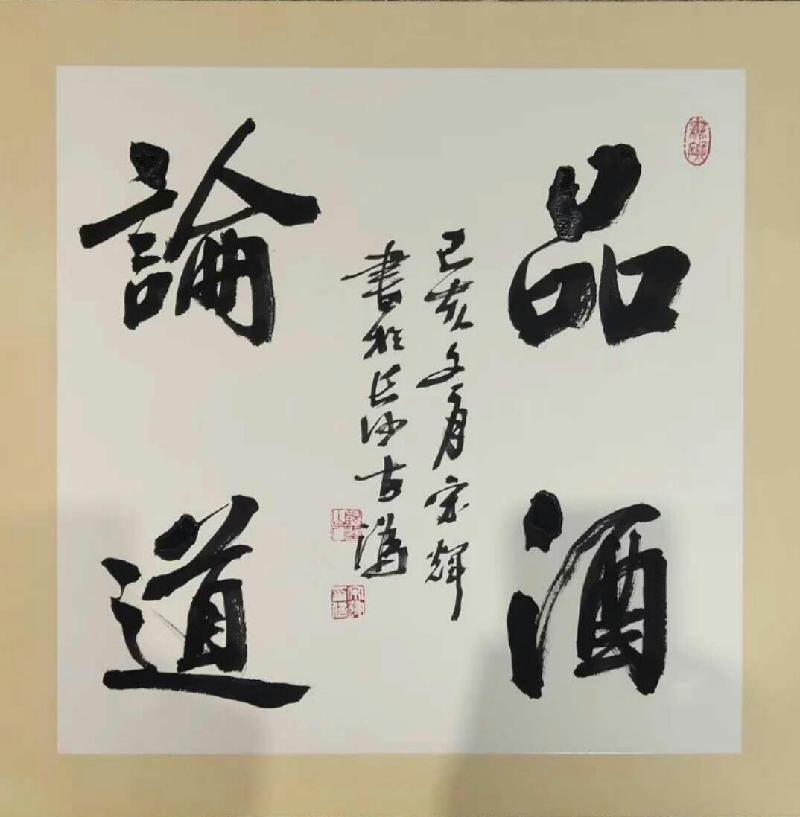 品酒
論道
己亥文月宗輝
書於長沙古潭